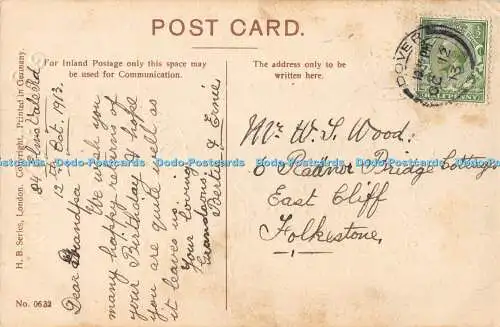 POST CARD.
For Inland Postage only this space may
be used for Communication.
The address only to be
written here.
H. B. Series, London. Copyright. Printed in Germany.
No. 0632
84 Vale Rd
12 th Oct. 1913.
Dear Grandpa
We wish you
many happy returns of
your Birthday & hope
you are quite well as
it leaves us.
Your loving
Grandsons
Bertie & Ernie
Mr W. S. Wood:
8 Radnor Bridge Cottages
East Cliff
Folkestone.
DOVER
OC 12
13
Dodo-Postcards Dodo-Postcards Dodo-Postcards Dodo-Postcards